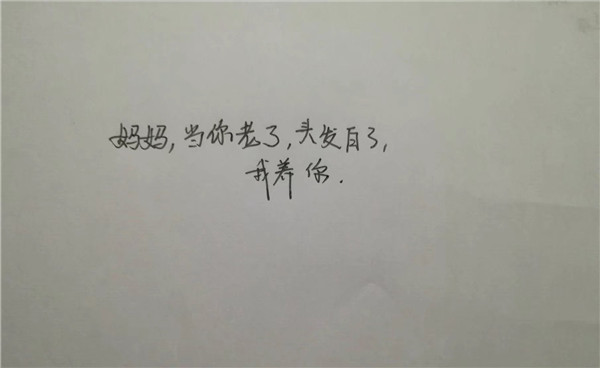 妈妈,当你老了,头发白了,
我养你.